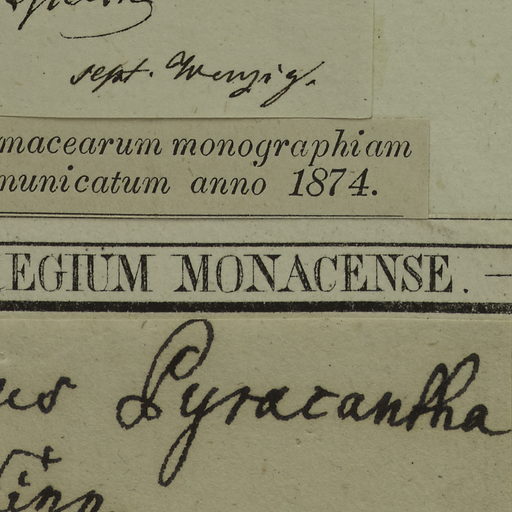 sept. Wenzig.
macearum monographiam
municatum anno 1874.
EGIUM MONACENSE. —
us Pyracantha
Linn